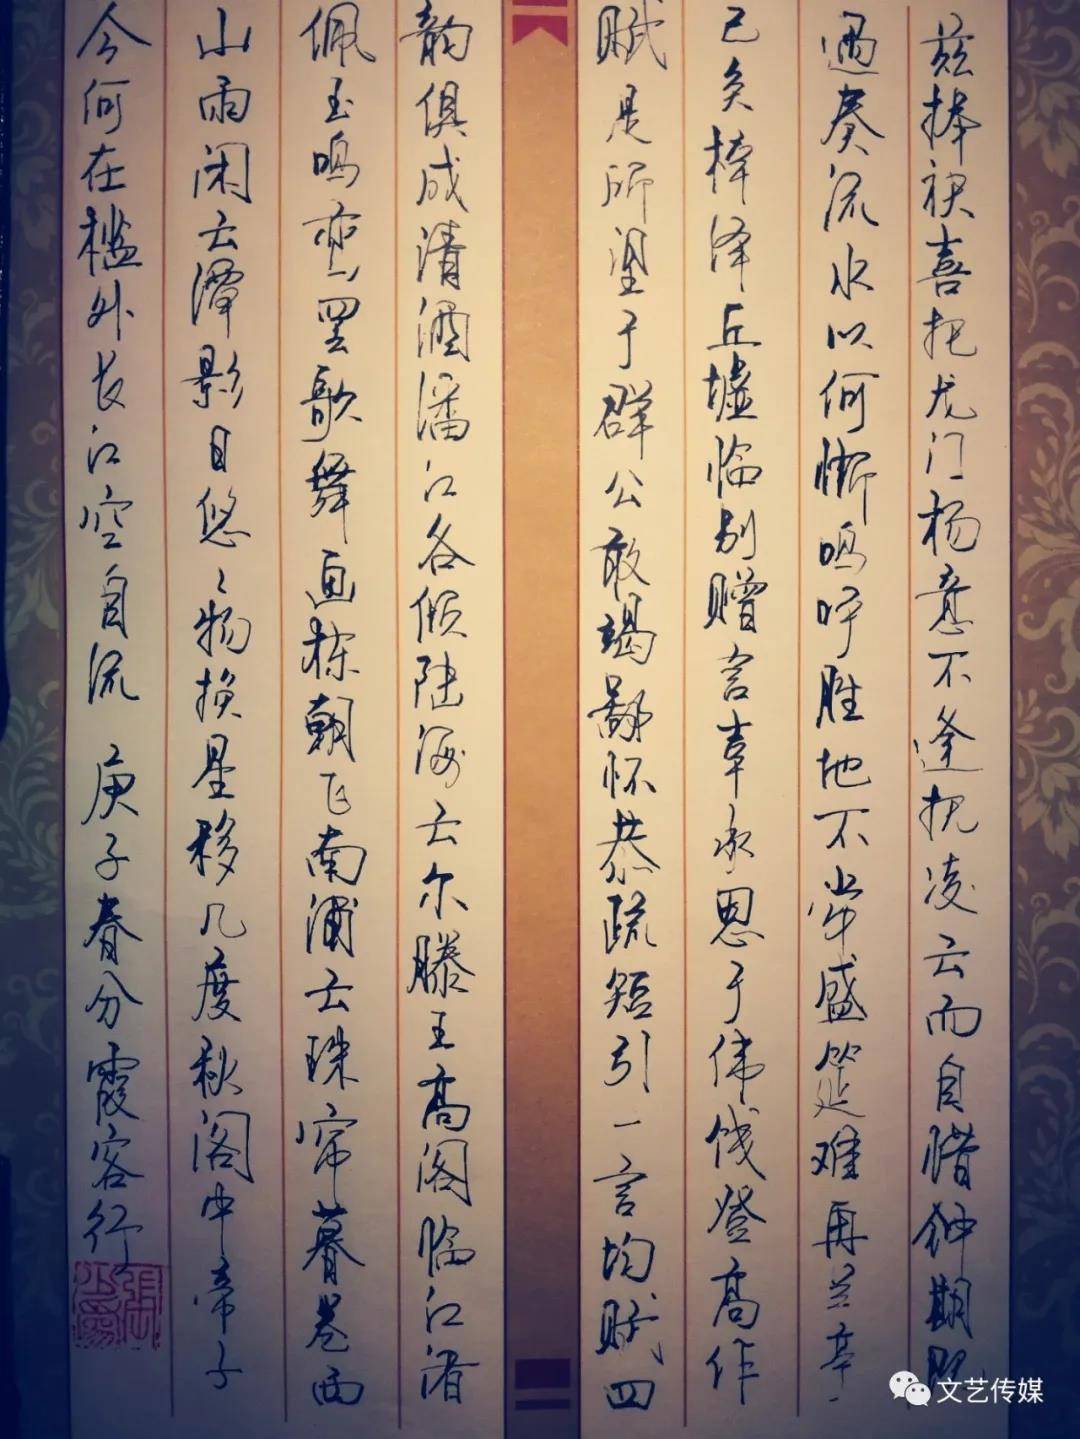 兹捧袂喜托龙门杨意不逢抚凌云而自惜钟期既
遇奏流水以何惭鸣呼胜地不常盛筵难再兰亭
已矣梓泽丘墟临别赠言幸承恩于伟饯登高作
赋是所望于群公敢竭鄙怀恭疏短引一言均赋四
韵俱成请洒潘江各倾陆海云尔滕王高阁临江渚
佩玉鸣鸾罢歌舞画栋朝飞南浦云珠帘暮卷西
山雨闲云潭影日悠々物换星移几度秋阁中帝子
今何在槛外长江空自流 庚子春分霞客行
文艺传媒